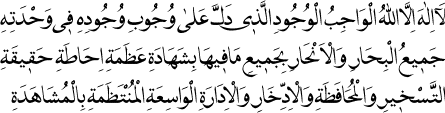 لَآ اِلٰهَ اِلَّا اللّٰهُ الْوَاجِبُ الْوُجُودِ الَّذِى دَلَّ عَلٰى وُجُوبِ وُجُودِهِ فِى وَحْدَتِهِ
جَمِيعُ الْبِحَارِ وَالْاَنْهَارِ بِجَمِيعِ مَافِيهَا بِشَهَادَةِ عَظَمَةِ اِحَاطَةِ حَقِيقَةِ
التَّسْخِيرِ وَالْمُحَافَظَةِ وَالْاِدِّخَارِ وَالْاِدَارَةِ الْوَاسِعَةِ الْمُنْتَظَمَةِ بِالْمُشَاهَدَةِ